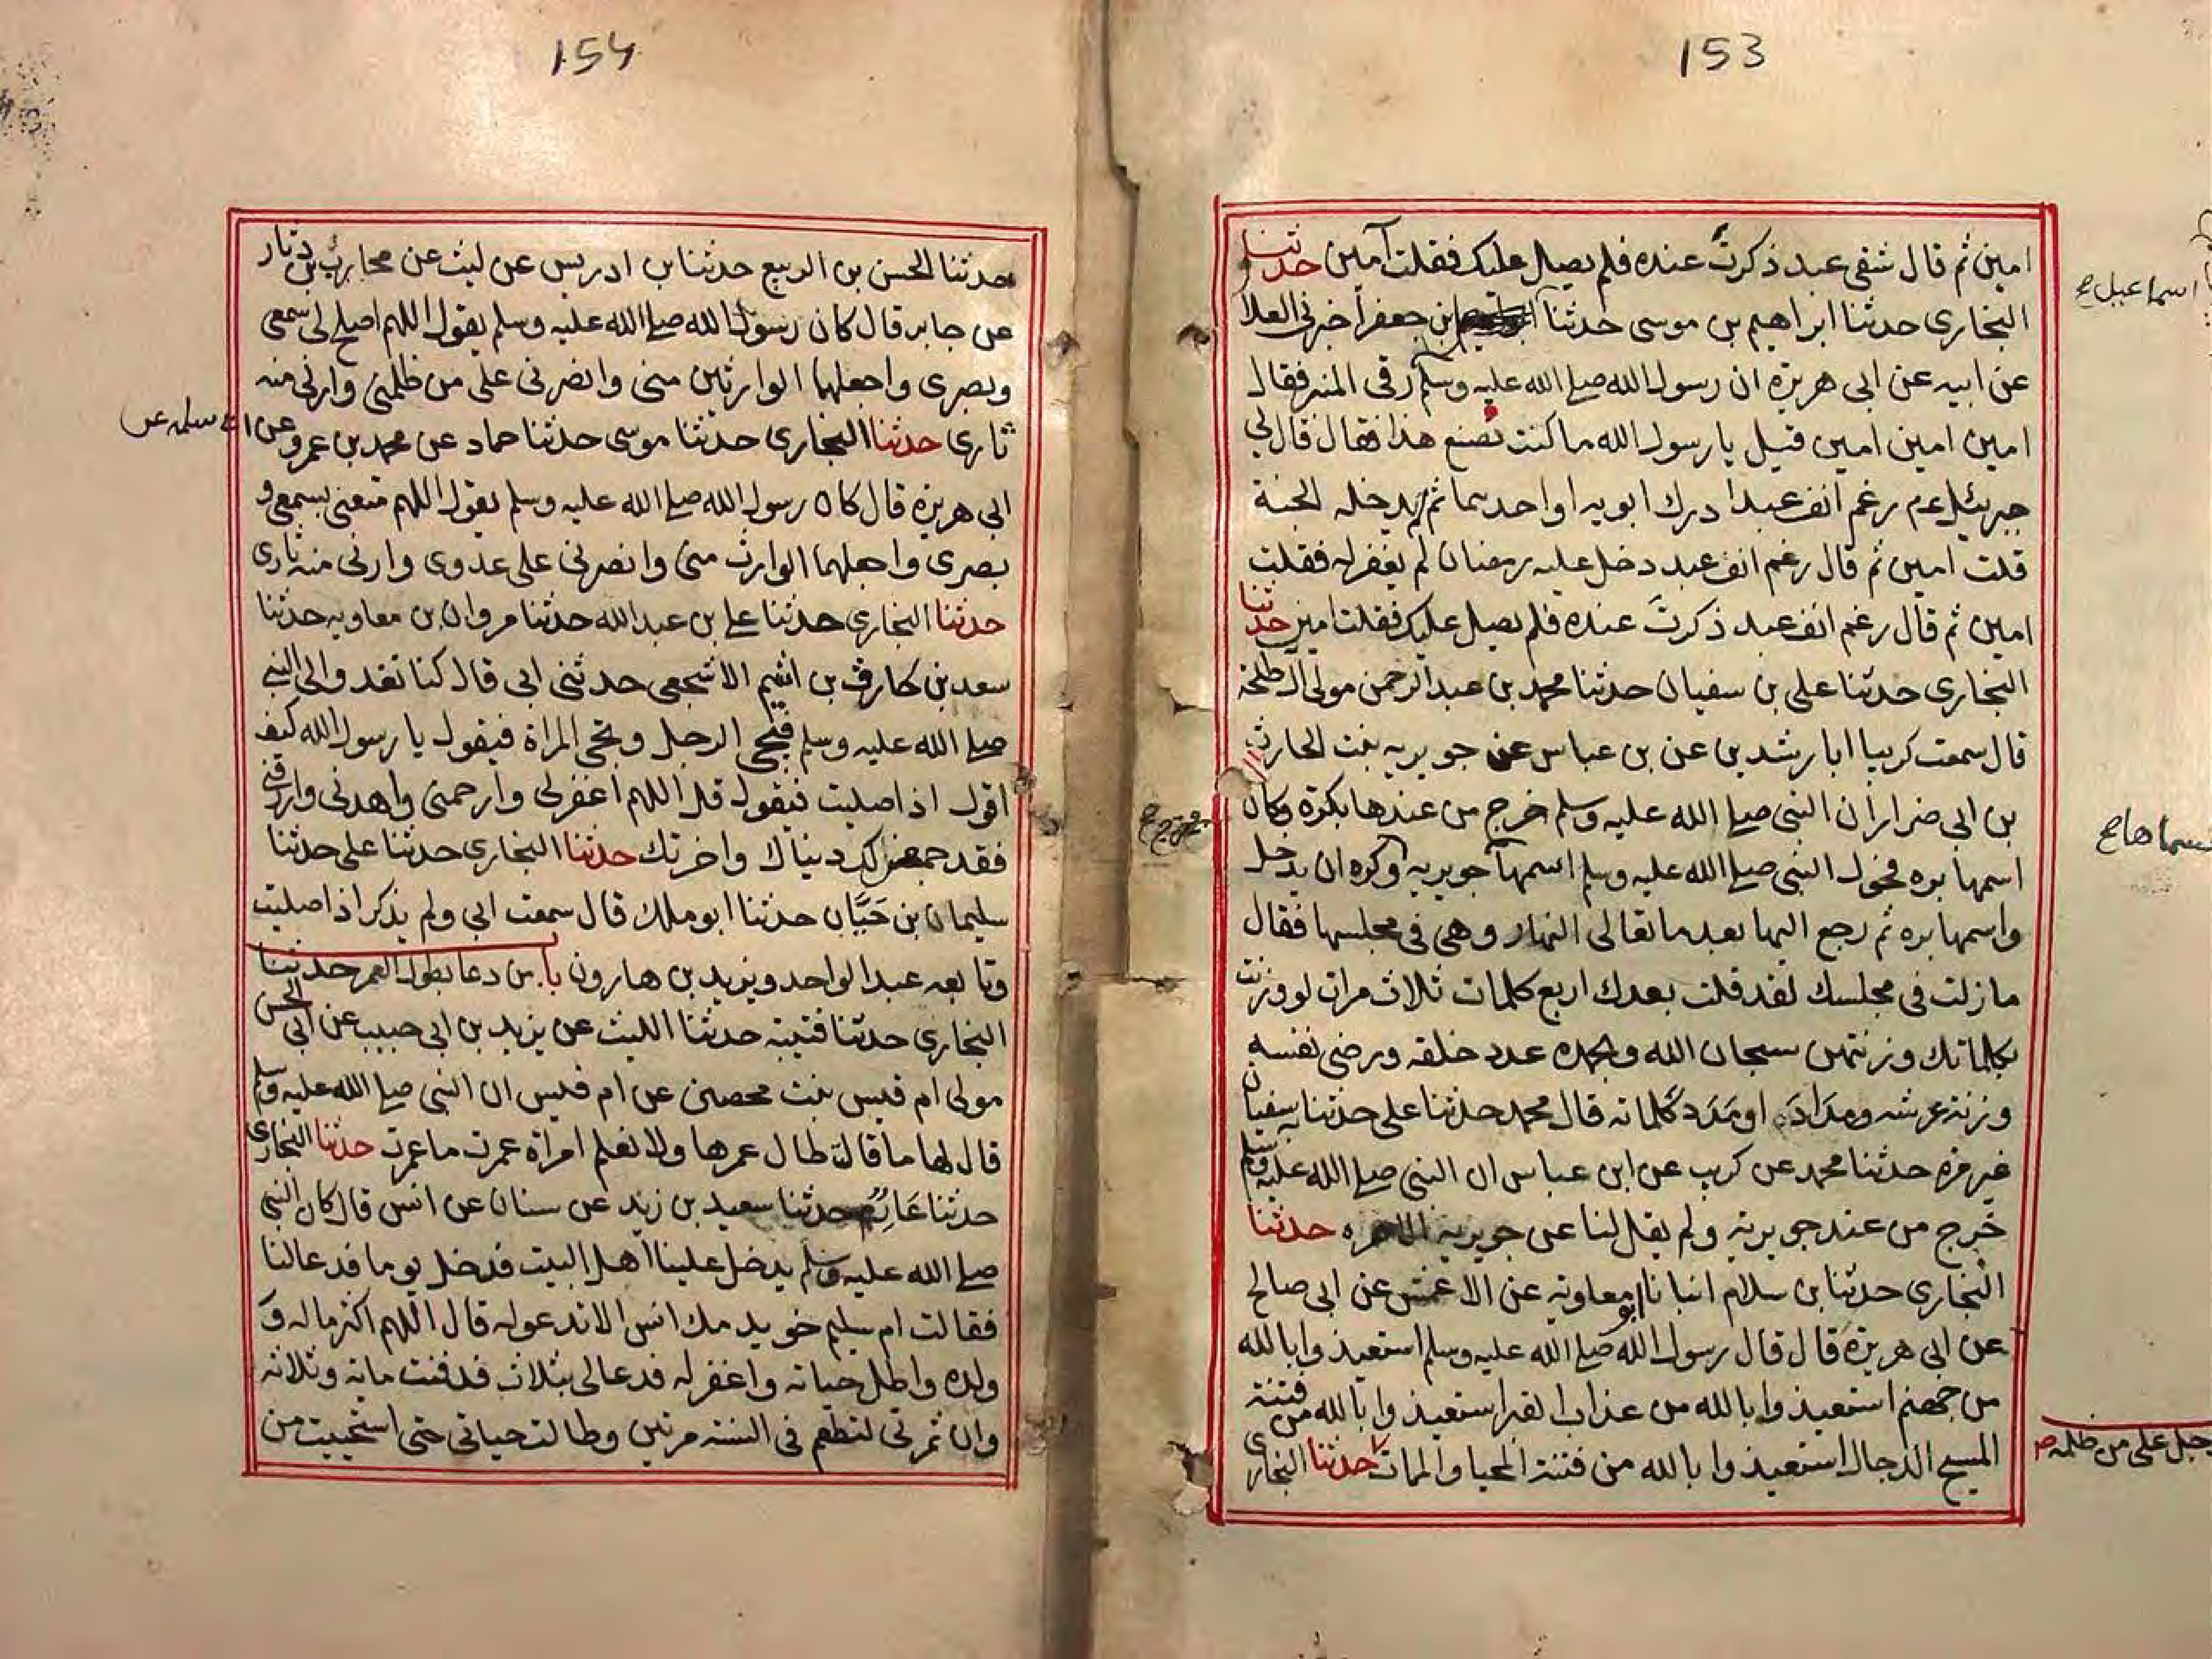 153
امين ثم قال شقي عبد ذكرتُ عنده فلم يصل عليك فقلت آمين حدثنا
البخاري حدثنا ابراهيم بن موسى حدثنا بن جعفر اخبرني العلا
اسماعيل ح
عن ابيه عن ابي هريرة ان رسول الله صلى الله عليه وسلم رقى المنبر فقال
امين امين امين قيل يا رسول الله ما كنت تصنع هذا فقال قال لي
جبرئيل عم رغم انف عبد ادرك ابويه او احدهما ثم لم يدخله الجنة
قلت امين ثم قال رغم انف عبد دخل عليه رمضان لم يغفر له فقلت
امين ثم قال رغم انف عبد ذكرتَ عنده فلم يصل عليك فقلت امين حدثنا
البخاري حدثنا علي بن سفيان حدثنا محمد بن عبد الرحمن مولى ال طلحة
قال سمعت كريبا ابا رشدين عن بن عباس عن جويرية بنت الحارث
بن ابي ضرار ان النبي صلى الله عليه وسلم خرج من عندها بكرة وكان
اسمها بره فحول النبي صلى الله عليه وسلم اسمها جويريه وكره ان يدخل
سماها ح
واسمها بره ثم رجع اليها بعد ما تعالى النهار وهي في مجلسها فقال
ما زلت في مجلسك لقد قلت بعدك اربع كلمات ثلاث مرات لو وزنت
بكلماتك وزنتهن سبحان الله وبحمده عدد خلقه ورضى نفسه
وزنة عرشه ومدَادَه او مَدَد كلماته قال محمد حدثنا علي حدثنا به سفيان
غير مره حدثنا محمد عن كريب عن ابن عباس ان النبي صلى الله عليه وسلم
خرج من عند جويرية ولم يقل لنا عن جويرية الا مره حدثنا
البخاري حدثنا بن سلام انبانا ابو معاوية عن الاعمش عن ابي صالح
عن ابي هريرة قال قال رسول الله صلى الله عليه وسلم استعيذوا بالله
من جهنم استعيذوا بالله من عذاب القبر استعيذوا بالله من فتنة
المسيح الدجال استعيذوا بالله من فتنة المحيا والممات حدثنا البخاري
على من ظلمه
154
حدثنا الحسن بن الربيع حدثنا بن ادريس عن ليث عن محارب بن دثار
عن جابر قال كان رسول الله صلى الله عليه وسلم يقول اللهم اصلح لي سمعي
وبصري واجعلهما الوارثين مني وانصرني على من ظلمني وارني منه
ثاري حدثنا البخاري حدثنا موسى حدثنا حماد عن محمد بن عمرو عن ابي سلمه عن
ابي هريرة قال كان رسول الله صلى الله عليه وسلم يقول اللهم متعني بسمعي و
بصري واجعلهما الوارث مني وانصرني على عدوي وارني منه ثاري
حدثنا البخاري حدثنا علي بن عبد الله حدثنا مروان بن معاويه حدثنا
سعد بن طارق بن اشيم الاشجعي حدثني ابي قال كنا نغدو الى النبي
صلى الله عليه وسلم فيجي الرجل وتجي المراة فيقول يا رسول الله كيف
اقول اذا صليت فيقول قل اللهم اغفر لي وارحمني واهدني وارزقني
فقد جمعن لك دنياك واخرتك حدثنا البخاري حدثنا علي حدثنا
سليمان بن حَيَّان حدثنا ابو ملك قال سمعت ابي ولم يذكر اذا صليت
وتابعه عبد الواحد ويزيد بن هارون باب من دعا بطول العمر حدثنا
البخاري حدثنا قتيبة حدثنا الليث عن يزيد بن ابي حبيب عن ابي الحسن
مولى ام قيس بنت محصن عن ام قيس ان النبي صلى الله عليه وسلم
قال لها ما قالت طال عمرها ولا نعلم امراة عمرت ما عمرت حدثنا البخاري
حدثنا عَارِمٌ حدثنا سعيد بن زيد عن سنان عن انس قال كان النبي
صلى الله عليه وسلم يدخل علينا اهل البيت فدخل يوما فدعا لنا
فقالت ام سليم خويدمك انس الا تدعو له قال اللهم اكثر ماله و
ولده واطل حياته واغفر له فدعا لي بثلاث فدفنت ماية وثلاثه
وان ثمرتي لتطعم في السنه مرتين وطالت حياتي حتى استحييت من